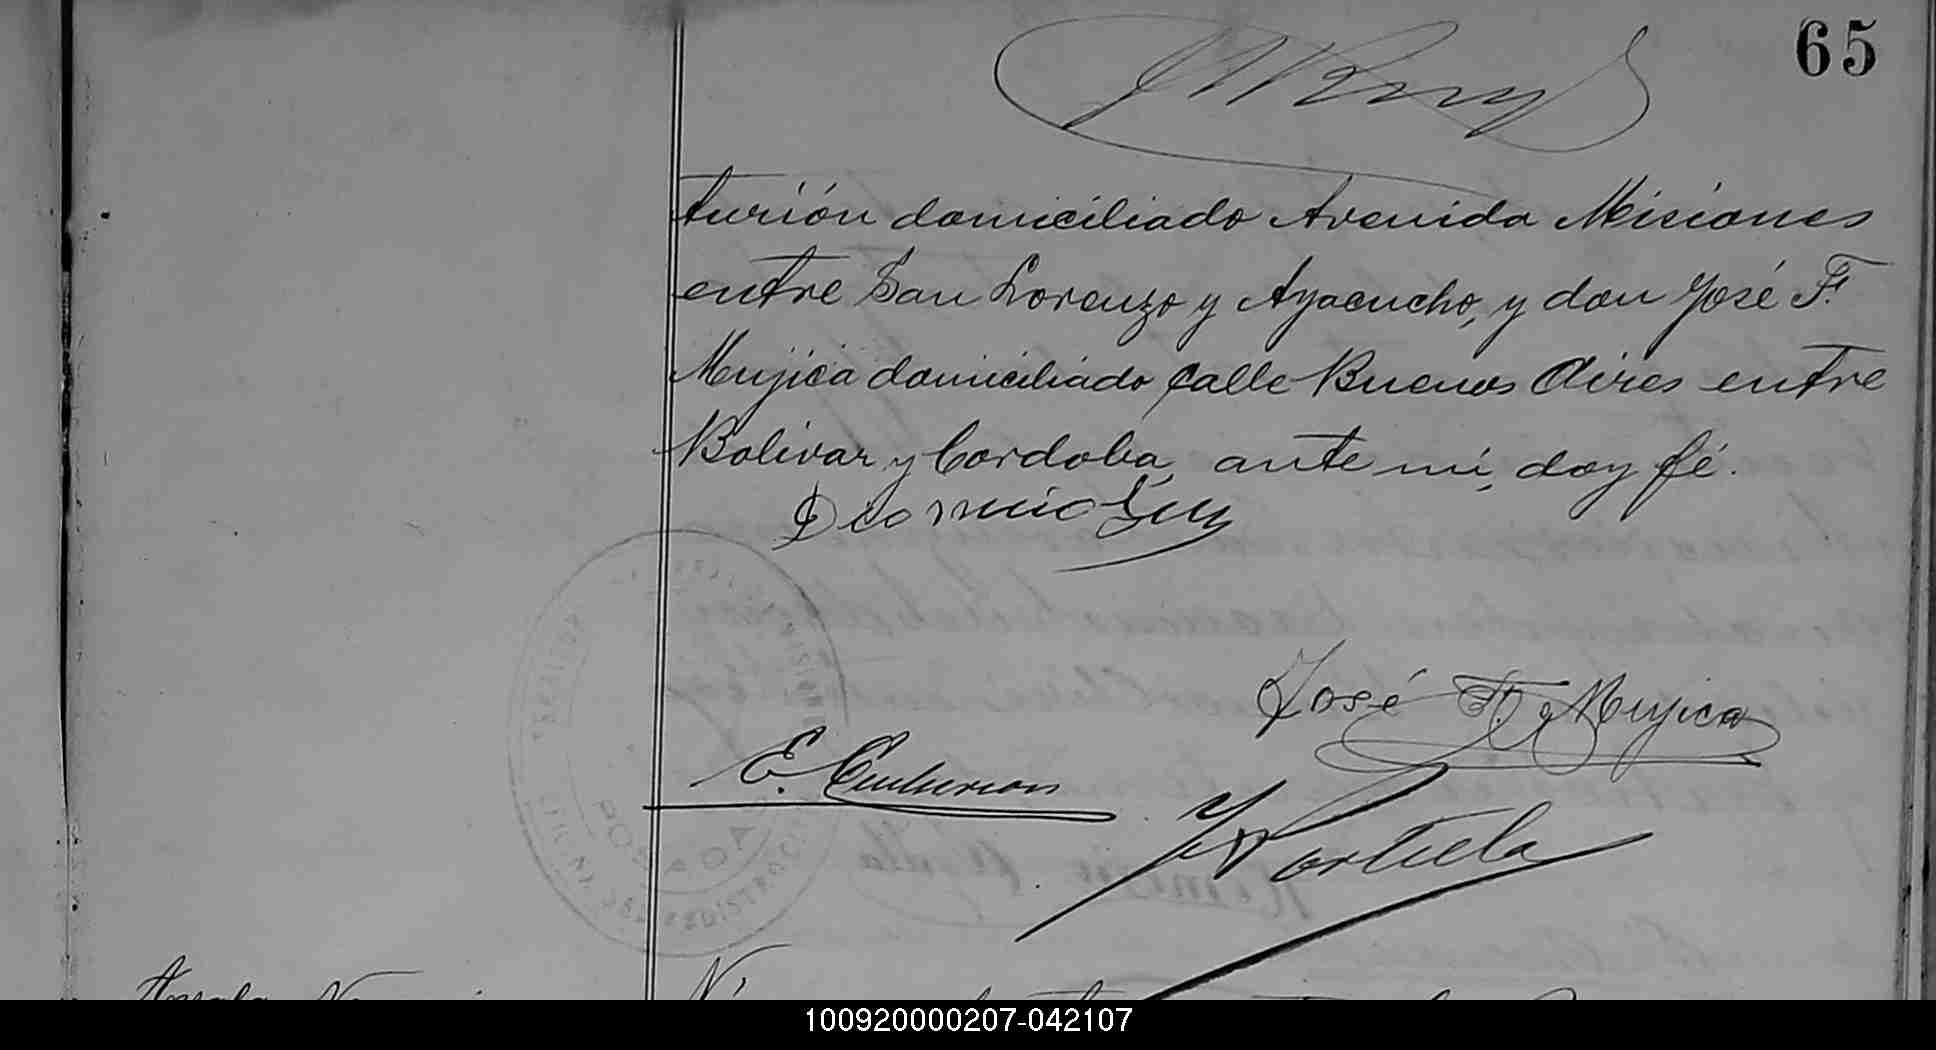 65
turión domiciliado Avenida Misiones
entre San Lorenzo y Ayacucho, y don José F.
Mujica domiciliado calle Buenos Aires entre
Bolivar y Cordoba, ante mi, doy fé.
José F. Mujica
E. Centurion
Portela
POSADAS
100920000207-042107